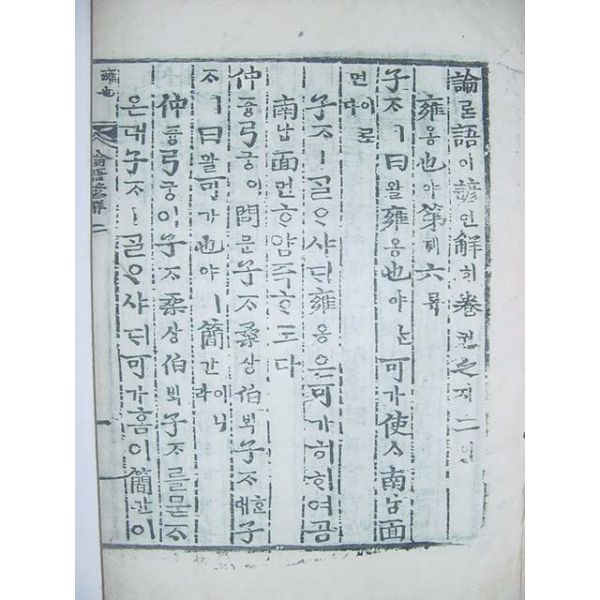 論론語어諺언解ᄒᆡ卷권之지二이
雍옹也야第뎨六륙
子ᄌᆞㅣ曰왈雍옹也야ᄂᆞᆫ可가使ᄉᆞ南남面
면이로다
子ᄌᆞㅣᄀᆞᆯᄋᆞ샤ᄃᆡ雍옹은可가히ᄒᆞ여곰
南남面면ᄒᆞ얌즉ᄒᆞ도다
仲듕弓궁이問문子ᄌᆞ桑상伯ᄇᆡᆨ子ᄌᆞᄒᆞᆫ대子
ᄌᆞㅣ曰왈可가也야ㅣ簡간이니라
仲듕弓궁이子ᄌᆞ桑상伯ᄇᆡᆨ子ᄌᆞ를묻ᄌᆞ
온대子ᄌᆞㅣᄀᆞᆯᄋᆞ샤ᄃᆡ可가홈이簡간이
雍也
論語諺解二
一